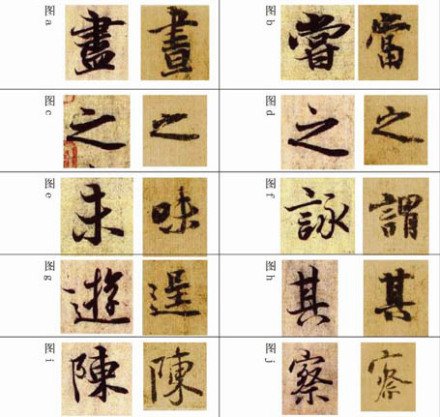 图a 盡 晝 图b 嘗 當
图c 之 之 图d 之 之
图e 未 味 图f 詠 謂
图g 遊 逞 图h 其 其
图i 陳 陳 图j 察 察